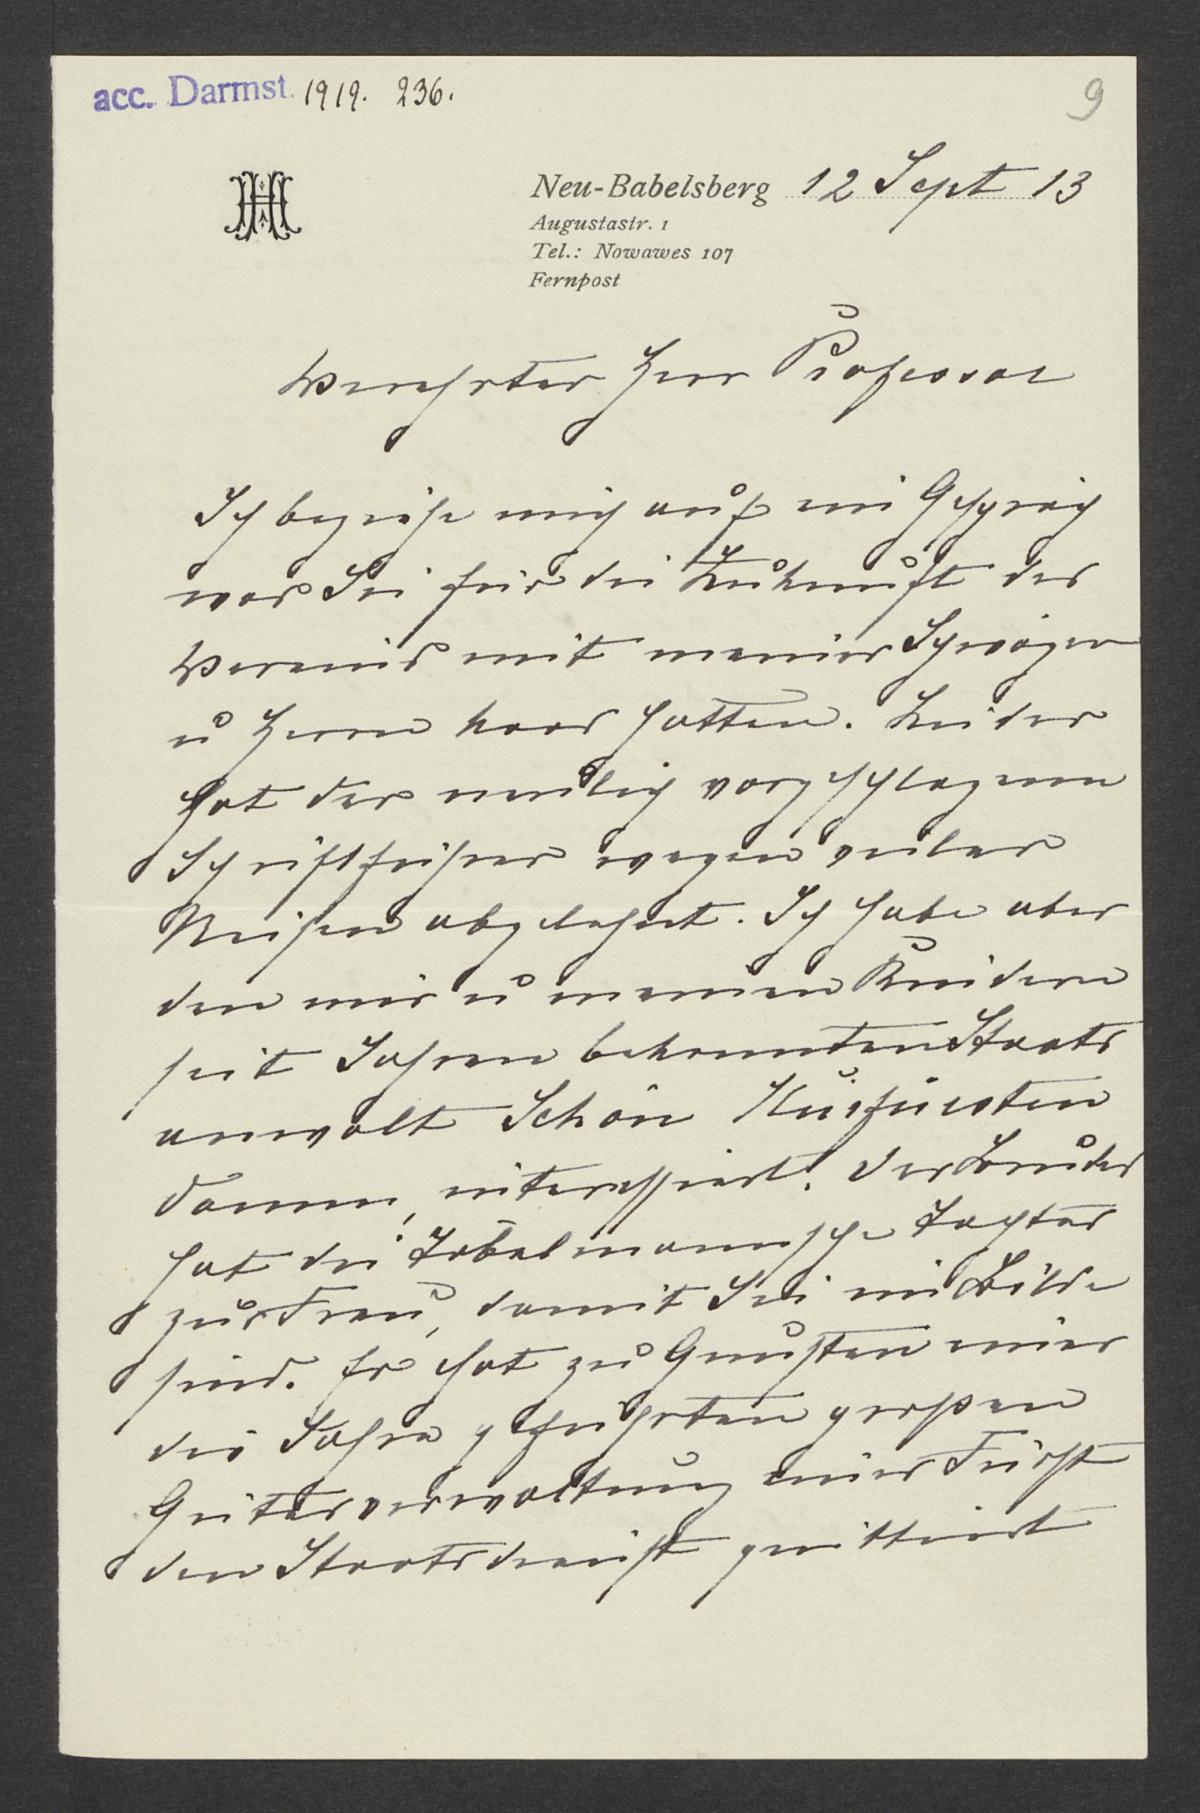 acc. Darmst. 1919. 236.
9
Neu-Babelsberg 12 Sept 13
Augustastr. 1
Tel.: Nowawes 107
Fernpost
Verehrter Herr Professor
Ich beziehe mich auf ein Gespräch
was Sie für die Zukunft des
Vereins mit meiner Schwäger
u Herrn hatten. Leider
hat der neulich vorgeschlagene
Schriftführer wegen vieler
Reisen abgelehnt. Ich habe aber
den mir u meinen Kindern
seit Jahren bekannten Staats
anwalt Schön Kurfürsten
damm, interessiert. Der Bruder
hat die Tochter
zur Frau, damit Sie im Bilde
sind. Er hat zu Gunsten einer
drei Jahre geführten großen
Güterverwaltung einer Fürst
den Staatsdienst quittiert